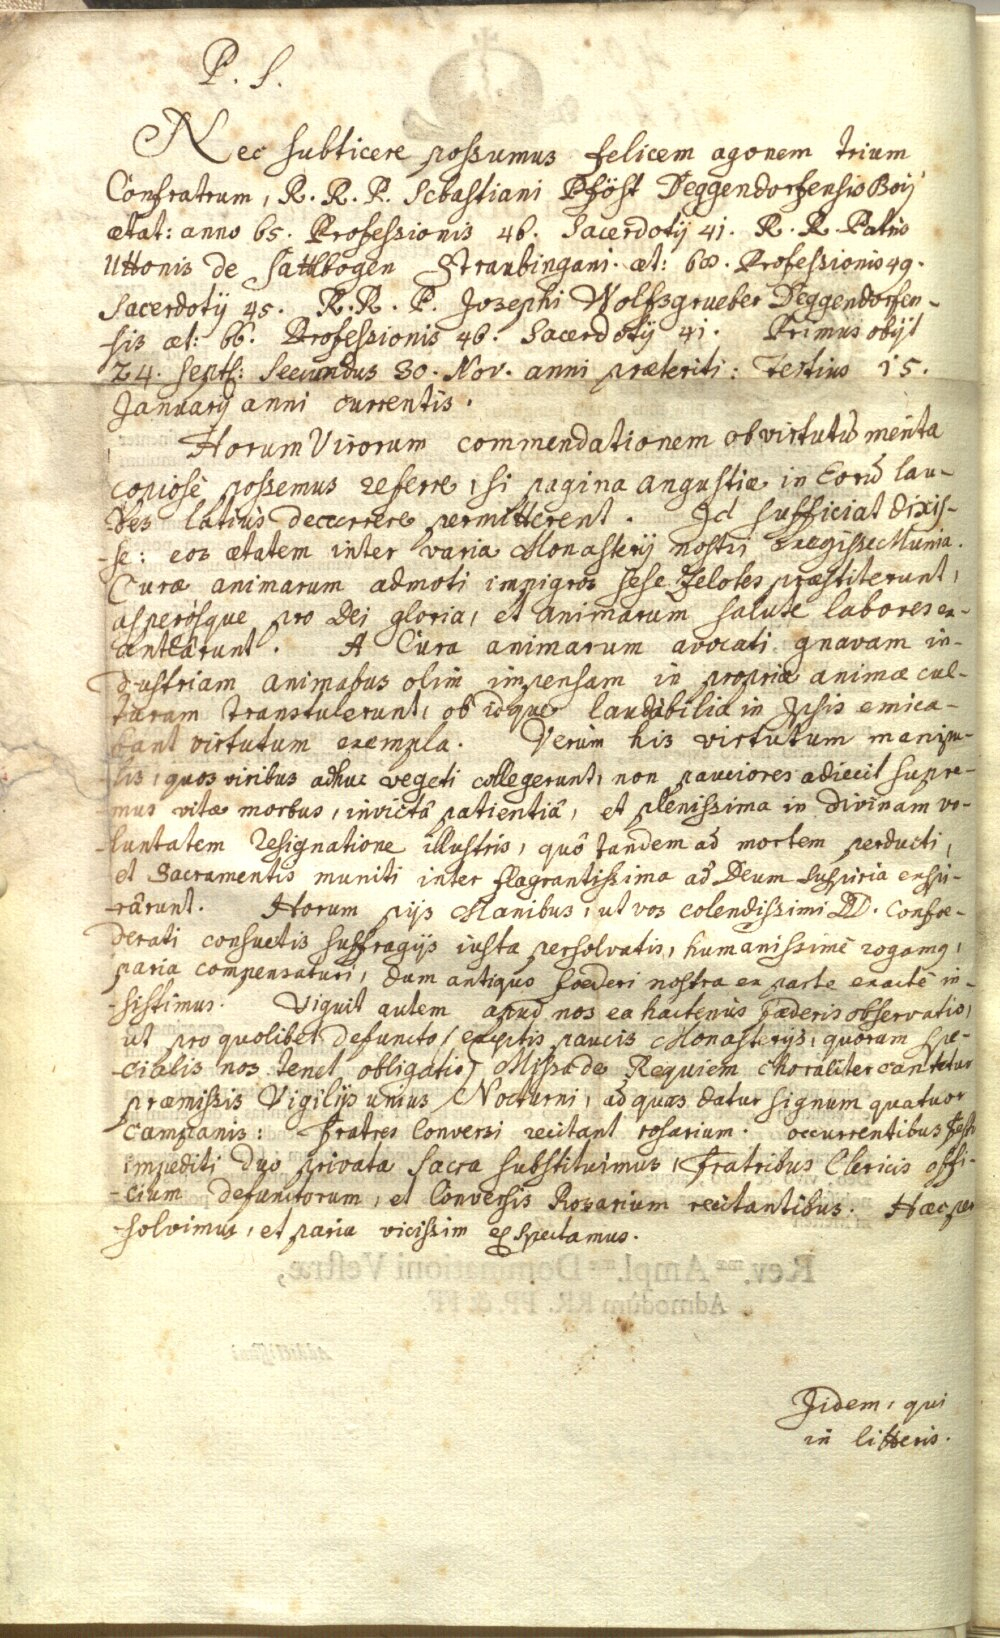 P. S.
Nec subticere possumus felicem agonem trium
Confratrum, R. R. P. Sebastiani Pföst Deggendorfensis Boij
ætat: anno 65. Professionis 46. Sacerdotij 41. R. R. Patris
Uttonis de Sattlbogen Straubingani. æt: 68. Professionis 49.
Sacerdotij 45. R. R. P. Josephi Wolfsgrueber Deggendorfen-
-sis æt: 66. Professionis 46. Sacerdotij 41. Primus obijt
24. Septb: Secundus 30. Nov. anni præteriti: Tertius 15.
Januarij anni currentis.
Horum Virorum commendationem ob virtutis merita
copiosè possemus referre, si pagina angustiæ in Eorũ lau-
des latiùs decurrere permitterent. Id sufficiat dixis-
-se: eos ætatem inter varia Monasterij nostri exegisse Munia.
Curæ animarum admoti impigros sese Zelotes præstiterunt,
asperosque pro Dei gloria, et animarum salute labores ex-
antlârunt. A Cura animarum avocati gnavam in-
dustriam animabus olim impensam in propriæ animæ cul-
turam transtulerunt, ob idque laudabilia in Ipsis emica-
bant virtutum exempla. Verùm his virtutum manipu-
-lis, quos viribus adhuc vegeti collegerunt, non pauciores adiecit supre-
-mus vitæ morbus, invictâ patientiâ, et plenissima in Divinam vo-
-luntatem resignatione illustris, quô tandem ad mortem perducti,
et Sacramentis muniti inter flagrantissima ad Deum suspiria expi-
-rârunt. Horum pijs Manibus, ut vos colendissimi DD. Confoe-
derati consuetis suffragijs iusta persolvatis, humanissimè rogamq,
paria compensaturi, dum antiquo foederi nostra ex parte exactè in-
-sistimus. Viguit autem apud nos ea hactenùs fæderis observatio,
ut pro quolibet defuncto (exceptis paucis Monasterijs, quorum spe-
-cialis nos tenet obligatio) Missa de Requiem choraliter cantetur
præmissis Vigilijs unius Nocturni, ad quas datur signum quatuor
campanis: Fratres Conversi recitant rosarium. occurrentibus Festis
impediti duo privata sacra substituimus, Fratribus Clericis offi-
-cium defunctorum, et Conversis Rosarium recitantibus. Hæc per
-solvimus, et paria vicissim expectamus.
Iidem, qui
in litteris.